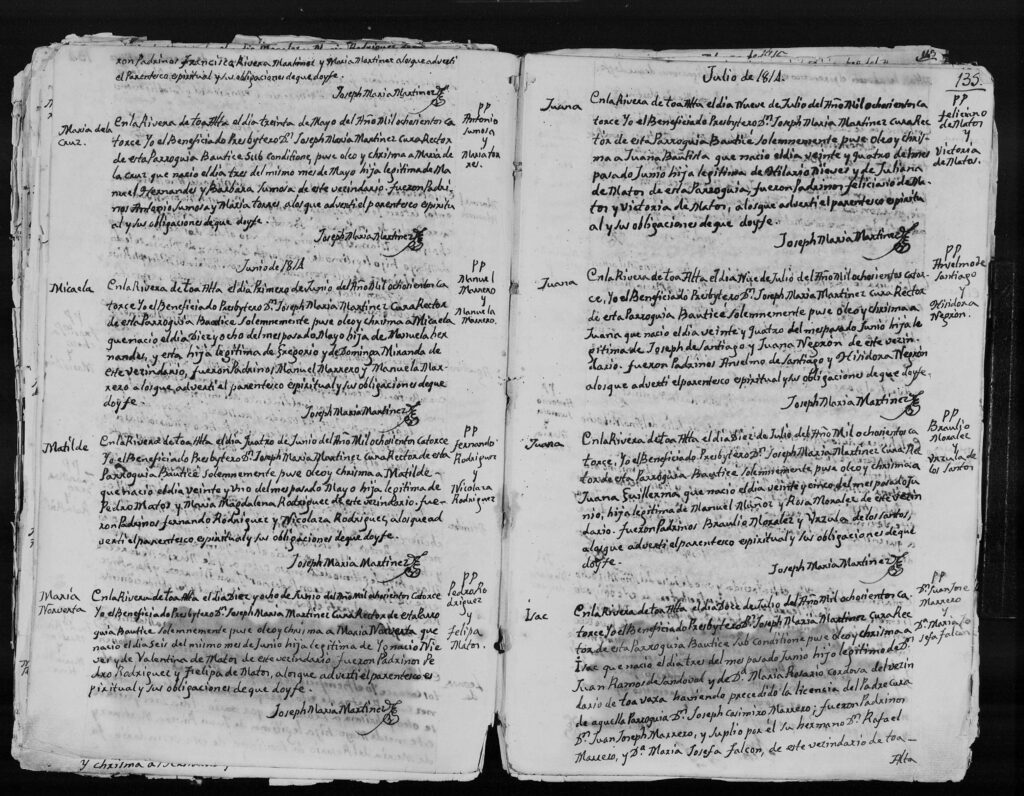 ron Padrinos Francisca Rivera Martinez y Maria Martinez alosque adverti
el Parentesco espiritual y sus obligaciones deque doyfe.
Joseph Maria Martinez
Maria dela
Cruz.
Enla Rivera de toa Alta el dia treinta de Mayo del Año Mil ochocientos ca
torce Yo el Beneficiado Presbytero Dn. Joseph Maria Martinez Cura Rector
de esta Parroquia Bautice Sub Conditione, puse oleo y chrisma a Maria de
la Cruz que nacio el dia tres del mismo mes de Mayo hija legitima de Ma
nuel Hernandes y Barbara de este vezindario. fueron Padri
nos Antonio y Maria Torres, alos que adverti el parentesco espiritu
al y sus obligaciones deque doyfe.
Joseph Maria Martinez
PP
Antonio
y
Maria tor
res.
Junio de 1814
Micaela
Enla Rivera de toa Alta el dia Primero de Junio del Año Mil ochocientos ca
torce Yo el Beneficiado Presbytero Dn. Joseph Maria Martinez Cura Rector
de esta Parroquia Bautice Solemnemente puse oleo y chrisma a Micaela
que nacio el dia Diez y ocho del mes pasado Mayo hija de Manuela her
nandes, y esta hija legitima de Gregorio y de Dominga Miranda de
este vezindario, fueron Padrinos Manuel Marrero y Manuela Mar
rero alosque adverti el parentesco espiritual y sus obligaciones deque
doyfe.
Joseph Maria Martinez
PP
Manuel
Marrero
y
Manuela
Marrero.
Matilde
Enla Rivera de toa Alta el dia Quatro de Junio del Año Mil ochocientos Catorce
Yo el Beneficiado Presbytero Dn. Joseph Maria Martinez Cura Rector de esta
Parroquia Bautice Solemnemente puse oleo y chrisma a Matilde
que nacio el dia veinte y uno del mes pasado Mayo hija legitima de
Pedro Matos y Maria Magdalena Rodriguez de este vezindario. fue-
ron Padrinos fernando Rodriguez y Nicolaza Rodriguez, alosque ad
verti el parentesco espiritual y sus obligaciones deque doyfe.
Joseph Maria Martinez
PP
fernando
Rodriguez
y
Nicolaza
Rodriguez
Maria
Norverta
Enla Rivera de toa Alta el dia Diez y ocho de Junio del Año Mil ochocientos Catorce
Yo el Beneficiado Presbytero Dn. Joseph Maria Martinez Cura Rector de esta Parro
quia Bautice Solemnemente puse oleo y chrisma a Maria Norverta que
nacio el dia seis del mismo mes de Junio hija legitima de Ygnacio Nie
ves y de Valentina de Matos de este vezindario fueron Padrinos Pe
dro Rodriguez y Felipa de Matos, alosque adverti el parentesco es
piritual y sus obligaciones deque doyfe.
Joseph Maria Martinez
PP
Pedro Ro
driguez
y
felipa
Matos.
y chrisma a
Julio de 1814.
135.
Juana
Enla Rivera de toa Alta el dia Nueve de Julio del Año Mil ochocientos ca
torce Yo el Beneficiado Presbytero Dn. Joseph Maria Martinez Cura Rec
tor de esta Parroquia Bautice Solemnemente, puse oleo y chris
ma a Juana Bautista que nacio el dia veinte y quatro del mes
pasado Junio hija legitima de Hilario Nieves y de Juliana
de Matos de esta Parroquia, fueron Padrinos feliciano de Ma
tos y Victoria de Matos, alosque adverti el parentesco espiritu
al y sus obligaciones deque doyfe.
Joseph Maria Martinez
PP
feliciano
de Matos
y
Victoria
de Matos.
Juana
Enla Rivera de toa Alta el dia Nueve de Julio del Año Mil ochocientos cator
ce, Yo el Beneficiado Presbytero Dn. Joseph Maria Martinez Cura Rector
de esta Parroquia Bautice Solemnemente puse oleo y chrisma a
Juana que nacio el dia veinte y quatro del mes pasado Junio hija le
gitima de Joseph de Santiago y Juana Negron de este vezin
dario. fueron Padrinos Anselmo de Santiago y Hisidora Negron
alosque adverti el parentesco espiritual y sus obligaciones deque doyfe.
Joseph Maria Martinez
PP
Anselmo de
Santiago
y
Hisidora
Negron.
Juana
Enla Rivera de toa Alta el dia Diez de Julio del Año Mil ochocientos ca
torce, Yo el Beneficiado Presbytero Dn. Joseph Maria Martinez Cura Rec
tor de esta Parroquia Bautice Solemnemente puse oleo y chrisma a
Juana Guillerma que nacio el dia veinte y cinco del mes pasado Ju
nio, hija legitima de Manuel Muñoz y Rosa Morales de este vezin
dario. fueron Padrinos Braulio Morales y Vrzula de los Santos,
alosque adverti el parentesco espiritual y sus obligaciones deque
doyfe.
Joseph Maria Martinez
PP
Braulio
Morales
y
Vrzula de
los Santos
Isac
Enla Rivera de toa Alta el dia Doce de Julio del Año Mil ochocientos ca
torce Yo el Beneficiado Presbytero Dn. Joseph Maria Martinez Cura Rec
tor de esta Parroquia Bautice Sub Conditione puse oleo y chrisma a
Isac que nacio el dia tres del mes pasado Junio hijo legitimo de Dn.
Juan Ramos de Sandoval y de Da. Maria Rosario Cordova del vezin
dario de toa vaxa haviendo precedido la licencia del Padre Cura
de aquella Parroquia Dn. Joseph Casimiro Marrero; fueron Padrinos
Dn. Juan Joseph Marrero, y suplio por el su hermano Dn. Rafael
Marrero, y Da. Maria Josefa Falcon, de este vezindario de toa-
Alta
PP
Dn. Juan Jose
Marrero
y
Da. Maria Jo
sefa falcon